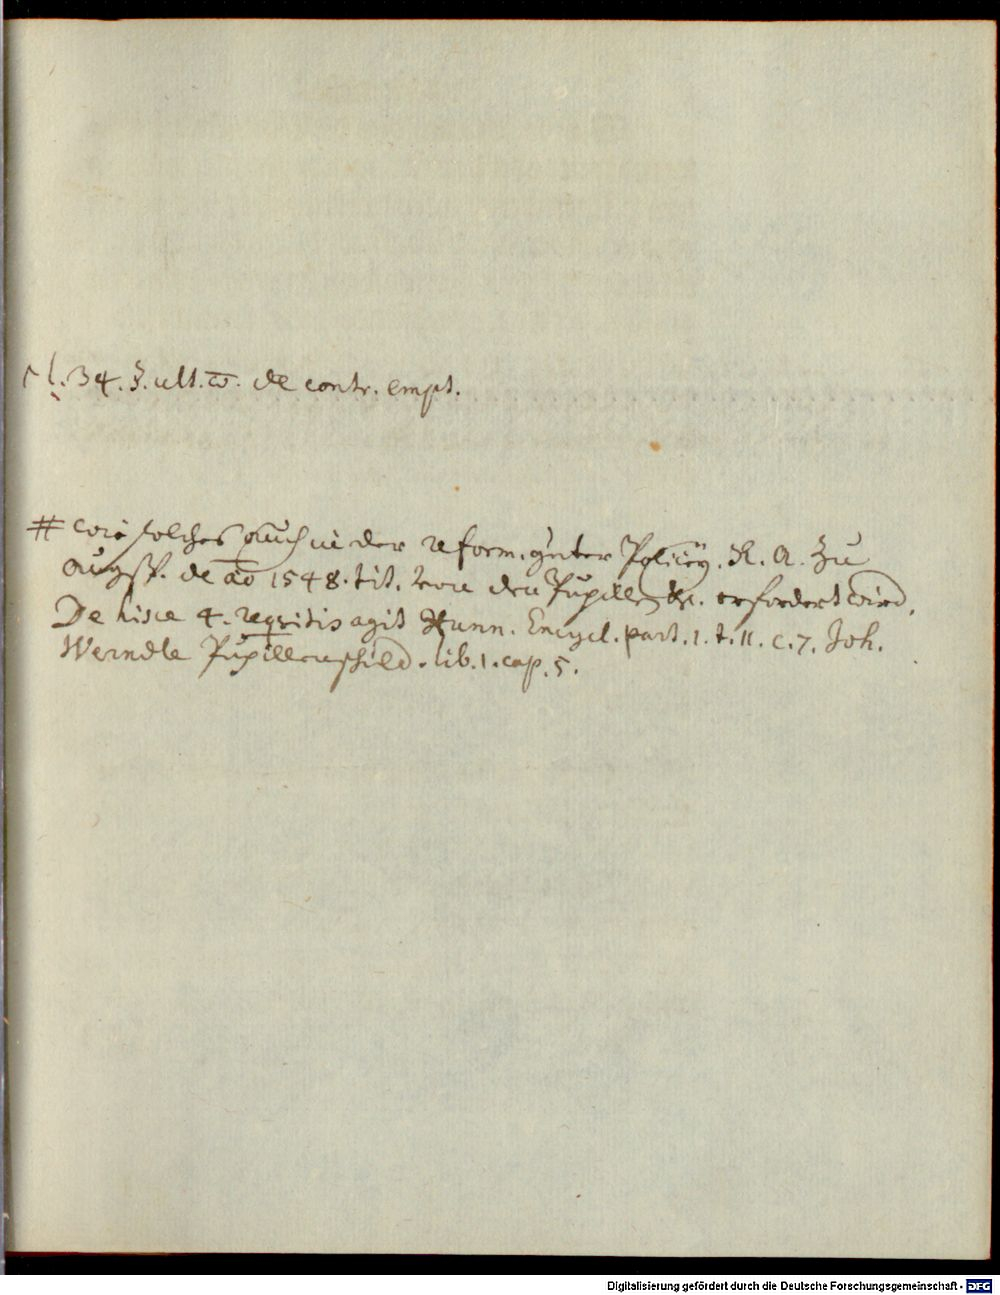 l. 34. §. ult. ω. de contr. empt.
# wie solches auch in der reform. guter Policey. R. A. zu
Augsp. de ao 1548. tit. von den Pupillen &c. erfordert wird.
De hisce 4. reqvisitis agit Hunn. Encycl. part. 1. t. 11. c. 7. Joh.
Werndle Pupillenschild. lib. 1. cap. 5.
Digitalisierung gefördert durch die Deutsche Forschungsgemeinschaft - DFG